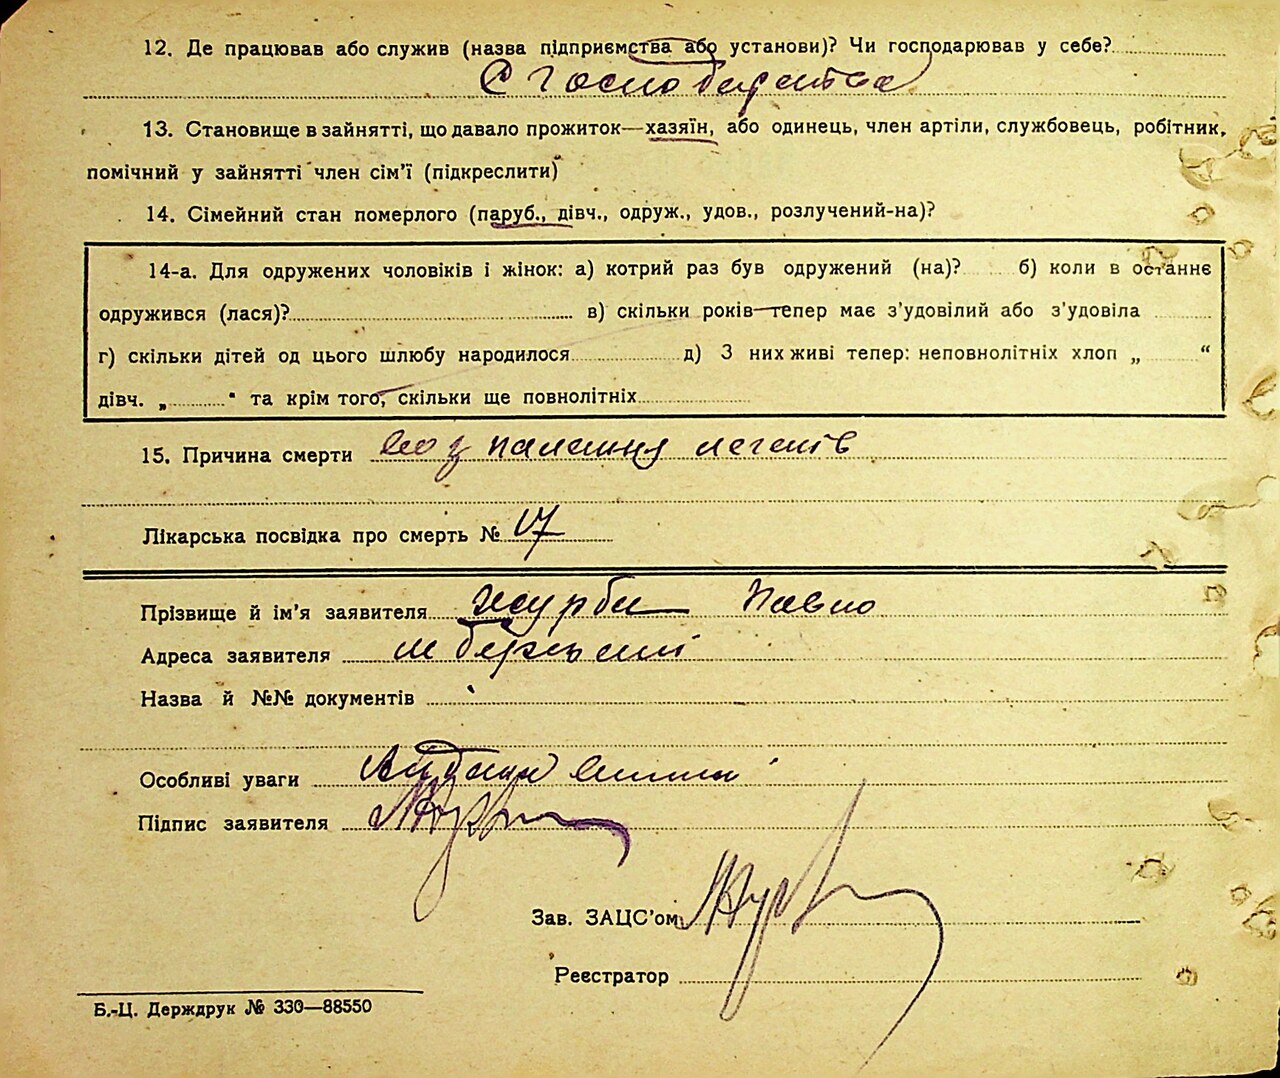 12. Де працював або служив (назва підприємства або установи)? Чи господарював у себе?
С Господарства
13. Становище в зайнятті, що давало прожиток—хазяїн, або одинець, член артіли, службовець, робітник,
помічний у зайнятті член сім'ї (підкреслити)
14. Сімейний стан померлого (паруб., дівч., одруж., удов., розлучений-на)?
14-а. Для одружених чоловіків і жінок: а) котрий раз був одружений (на)? б) коли в останнє
одружився (лася)? в) скільки років тепер має з'удовілий або з'удовіла
г) скільки дітей од цього шлюбу народилося д) З них живі тепер: неповнолітніх хлоп „ “
дівч. „ “ та крім того, скільки ще повнолітніх
15. Причина смерти легенів
Лікарська посвідка про смерть № 17
Прізвище й ім'я заявителя Журба Павло
Адреса заявителя м
Назва й №№ документів
Особливі уваги
Підпис заявителя
Зав. ЗАЦС'ом
Реєстратор
Б.-Ц. Держдрук № 330—88550